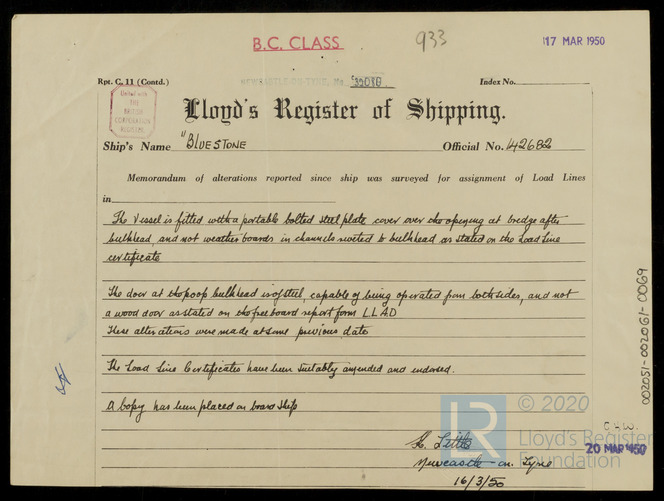 B.C. CLASS
933
17 MAR 1950
Rpt. C. 11 (Contd.)
NEWCASTLE-ON-TYNE, No.
Index No.
United with
THE
BRITISH
CORPORATION
REGISTER
Lloyd's Register of Shipping.
Ship's Name "BLUESTONE
Official No. 42682
Memorandum of alterations reported since ship was surveyed for assignment of Load Lines
in
The Vessel is fitted with a portable bolted steel plate cover over the opening at bridge after
bulkhead, and not weather boards in channels riveted to bulkhead as stated on the Load Line
certificate
The door at the poop bulkhead is of steel, capable of being operated from both sides, and not
a wood door as stated on the freeboard report form LLAD
These alterations were made at some previous date
The Load Line Certificates have been suitably amended and endorsed.
A copy has been placed on board ship
K. Little
Newcastle-on-Tyne
16/3/50
20 MAR 1950
002051-002061-0069
LR
© 2020
Lloyd's Register
Foundation